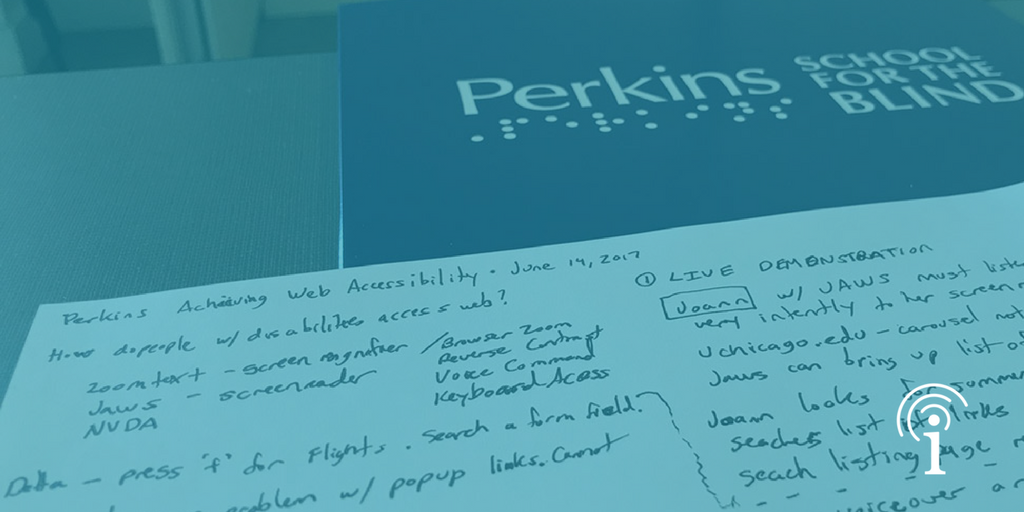 Perkins
SCHOOL
FOR THE
BLIND
Perkins Achieving Web Accessibility • June 14, 2017
How do people w/ disabilities access web?
Zoomtext - screen magnifier
Jaws - screenreader
NVDA
/ Browser Zoom
Reverse Contrast
Voice Command
Keyboard Access
Delta - press 'f' for Flights. Search a form field.
problem w/ popup links. Cannot
① LIVE DEMONSTRATION
Joann w/ JAWS must
very intently to her screen
uchicago.edu - carousel
Jaws can bring up list
Joann looks for
list of links
listing page
voiceover